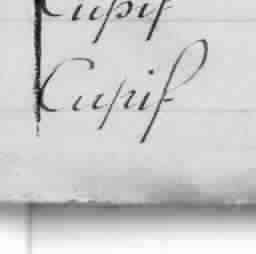 Cupif
Cupif